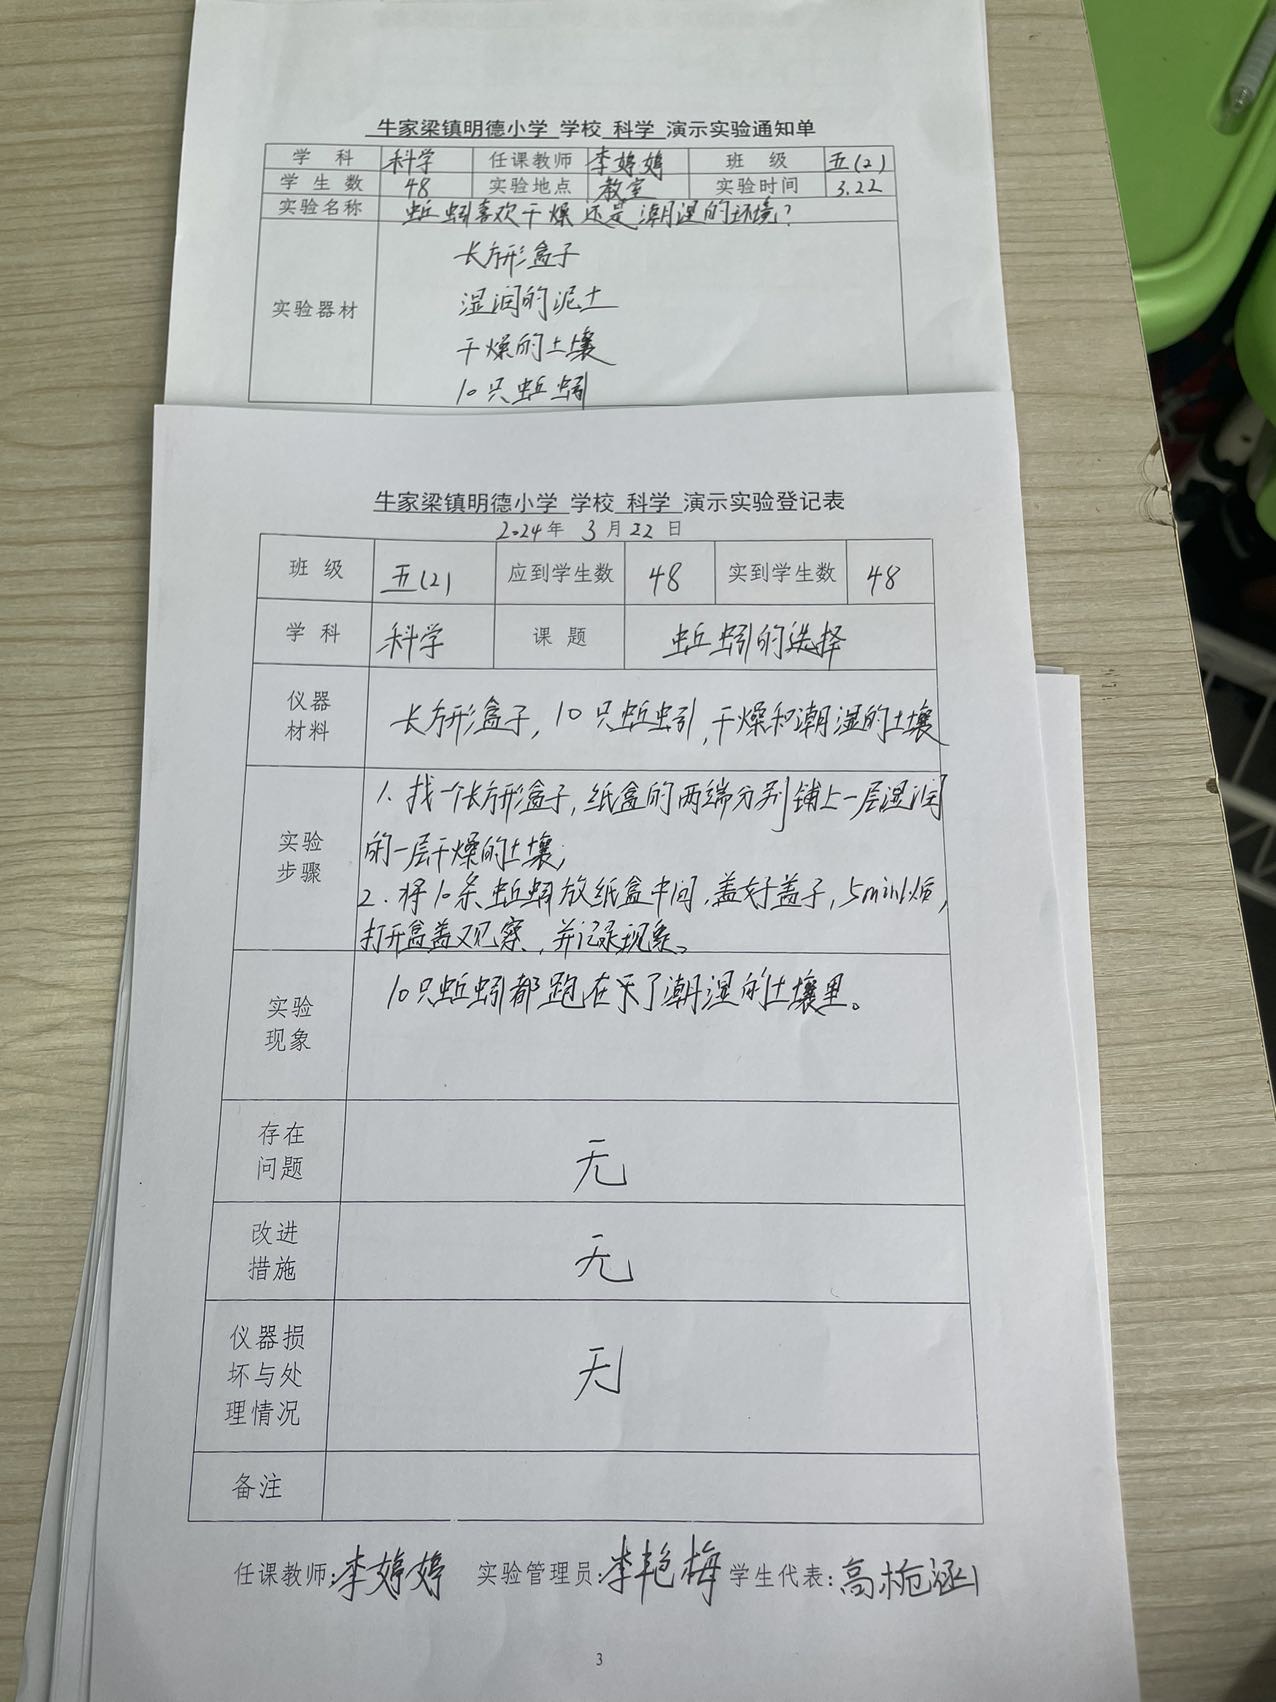 牛家梁镇明德小学 学校 科学 演示实验通知单
学科 科学 任课教师 李婷婷 班级 五(2)
学生数 48 实验地点 教室 实验时间 3.22
实验名称 蚯蚓喜欢干燥还是潮湿的环境?
实验器材
长方形盒子
湿润的泥土
干燥的土壤
10只蚯蚓
牛家梁镇明德小学 学校 科学 演示实验登记表
2024年 3月22日
班级 五(2) 应到学生数 48 实到学生数 48
学科 科学 课题 蚯蚓的选择
仪器材料 长方形盒子,10只蚯蚓,干燥和潮湿的土壤
实验步骤
1、找一个长方形盒子,纸盒的两端分别铺上一层湿润
的一层干燥的土壤;
2、将10条蚯蚓放纸盒中间,盖好盖子,5min以后,
打开盒盖观察,并记录现象。
实验现象 10只蚯蚓都跑在了潮湿的土壤里。
存在问题 无
改进措施 无
仪器损坏与处理情况 无
备注
任课教师:李婷婷 实验管理员:李艳梅 学生代表:高桅涵
3